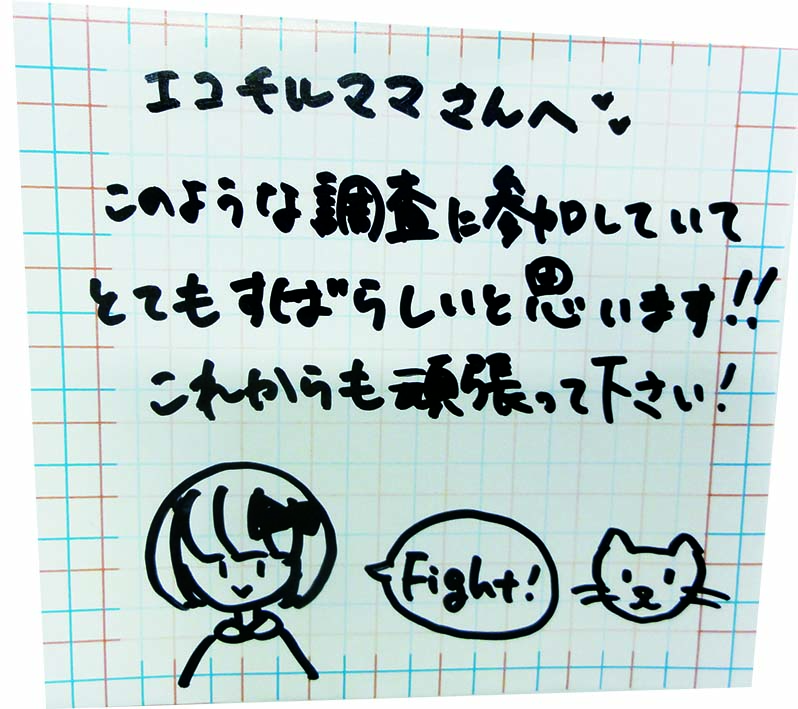 エコチルママさんへ
このような調査に参加していて
とてもすばらしいと思います!!
これからも頑張って下さい!
Fight!